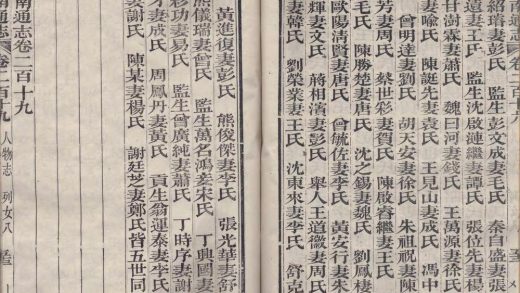 南通志 卷二百十九
紹瑞妻彭氏　彭文成妻毛氏　秦自盛妻張
遠妻王氏　監生沈啟漣繼妻譚氏　張位先妻
甘澍霖妻蕭氏　魏曰河妻錢氏　王萬源妻徐氏
妻喻氏　陳誕先妻袁氏　王見山妻成氏　馮中
曾明達妻劉氏　胡天安妻徐氏　朱祖祝妻
芳妻周氏　蔡世彩妻賀氏　陳啟睿繼妻王氏
毛氏　陳勝楚妻唐氏　沈之錫妻魏氏　劉鳳棲
歐陽清賢妻唐氏　曾毓佐妻李氏　黃安行妻朱
輝妻文氏　蔣相濱妻彭氏　舉人王道徽妻周氏
妻韓氏　劉榮業妻王氏　沈東來妻李氏　舒克
黃進復妻彭氏　熊俊傑妻李氏　張光華妻舒
熊儀瑞妻曾氏　監生萬名鴻妾宋氏　丁興國妻
移功妻易氏　監生曾廣純妻蕭氏　丁時序妻謝
妻成氏　周鳳丹妻黃氏　貢生翁運泰妻李氏
妻謝氏　陳某妻楊氏　謝廷芝妻鄭氏皆五世同
南通志 卷二百十九 人物志 列女八
南通志卷二百十九